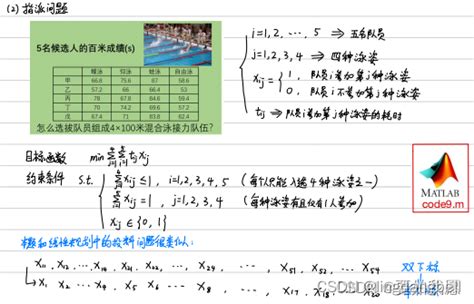 (2) 指派问题
5名候选人的百米成绩(s)
蝶泳 仰泳 蛙泳 自由泳
甲 66.8 75.6 87 58.6
乙 57.2 66 66.4 53
丙 78 67.8 84.6 59.4
丁 70 74.2 69.6 57.2
戊 67.4 71 83.8 62.4
怎么选拔队员组成4×100米混合泳接力队伍?
i=1,2,…,5 ⇒ 五名队员
j=1,2,3,4 ⇒ 四种泳姿
xij = { 1, 队员i参加第j种泳姿
0, 队员i不参加第j种泳姿
tij ⇒ 队员i参加第j种泳姿的耗时
目标函数 min ∑∑ tij xij
约束条件 s.t. ∑ xij ≤ 1, i=1,2,3,4,5 (每个只能入选4种泳姿之一)
∑ xij = 1, j=1,2,3,4 (每种泳姿有且仅有1人参加)
xij ∈ {0,1}
MATLAB
code9.m
X11, X12, …, X14, X21, …, X24, …, X51, X52, …, X54 双下标
X1, X2